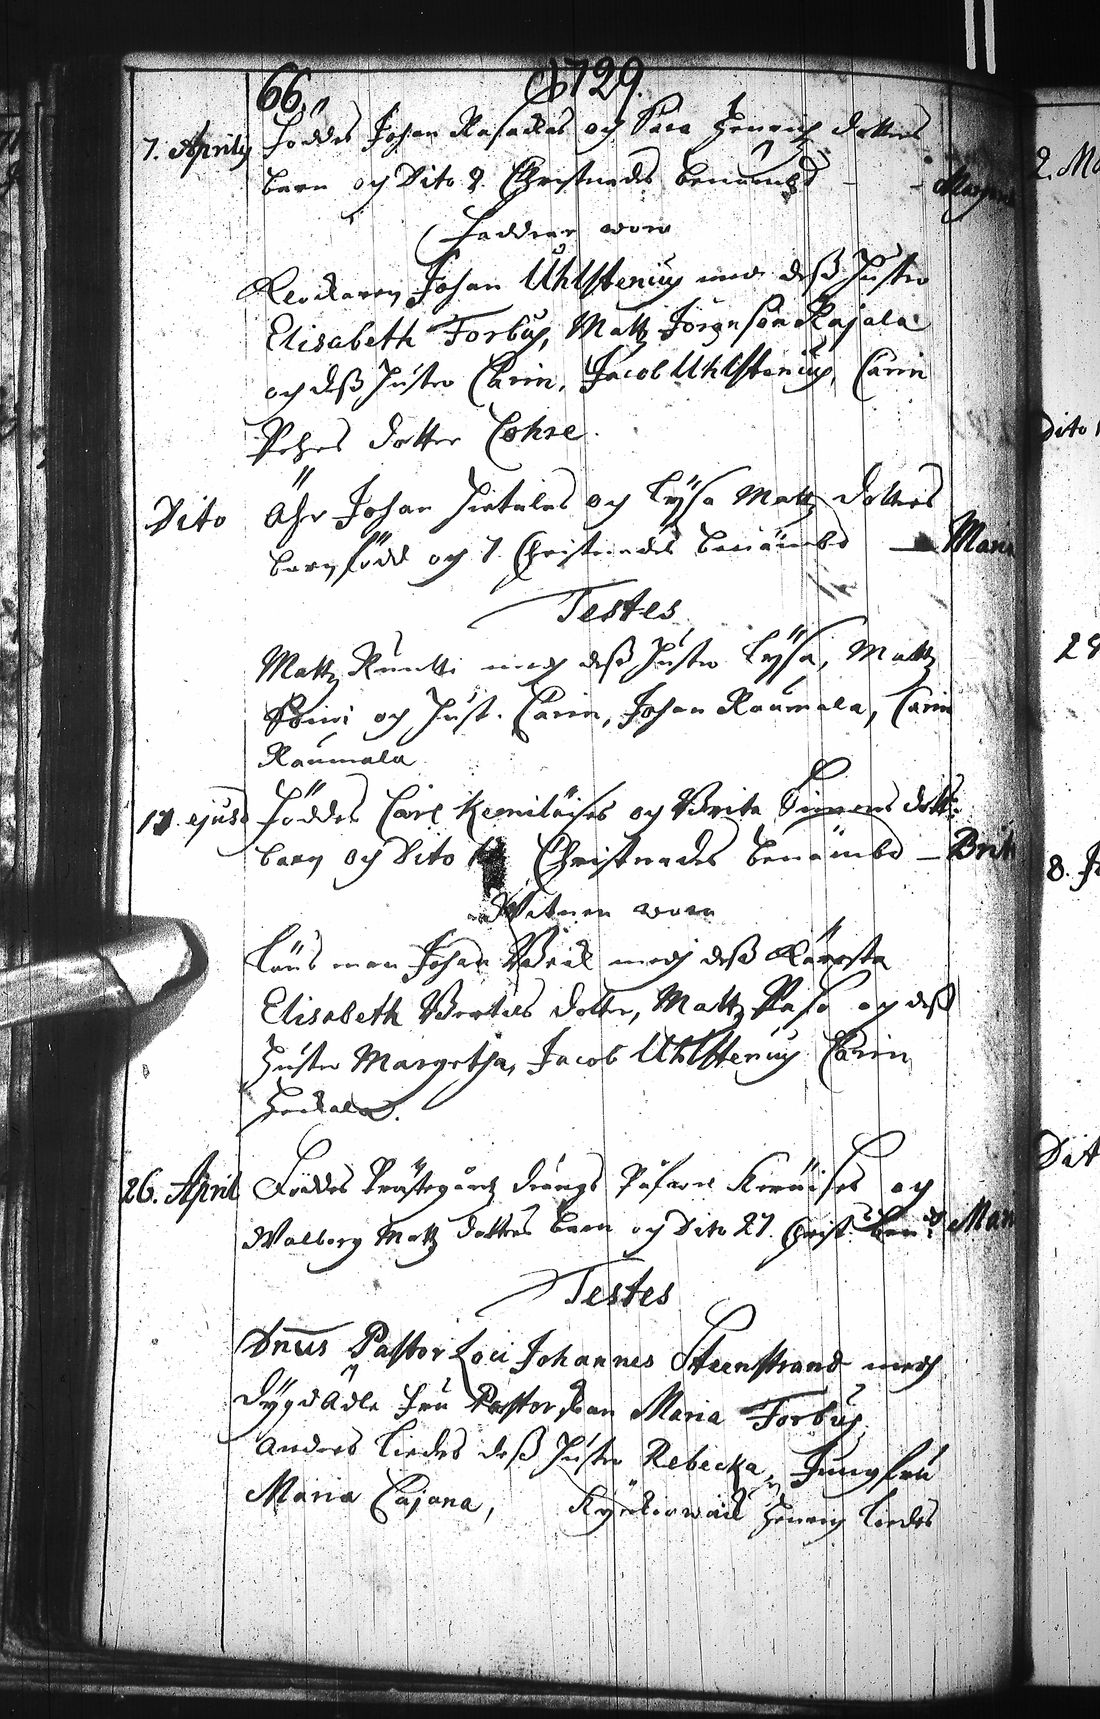 66. 1729.
7. Aprilis Föddes Johan Rasackas och Sara Henrich dotters
barn och Dito 8. Christnades benämbd - - Margeta
Faddrar woro
Klockaren Johan Uhlstenius med dess Hustro
Elisabeth Forbus, Matz Jörgnson Rajala
och dess Hustro Carin, Jacob Uhlstenius, Carin
Pehrs dotter Cohre.
Dito Ähr Johan Hietalas och Lysa Matz dotters
barn född och 7. Christnades benämbd — Maria
Testes
Matz Runtti med dess Hustro Lysa, Matz
och Hust. Carin, Johan Raumala, Carin
Raumala
ejusd Föddes Carl Kemiläises och Brita Simons dott:
barn och Dito Christnades benämbd — Brit
Witnen woro
Länsman Johan med dess Käresta
Elisabeth Bertels dotter, Matz Paso och dess
Hustro Margetha, Jacob Uhlstenius Carin
Heickala.
26. April Föddes Prästegårdz drängs och
Walborg Matz dotters barn och Dito 27. Christ: ben: Mar
Testes
Dnus Pastor Loci Johannes Steenstrand med
dygdädle Fru Pastorskan Maria Forbus,
Anders Liedes dess Hustro Rebecka, Jungfru
Maria Cajana, Kyrckiowärd Henrich Liedes
2. Ma
Dito
28
8. J
Dit